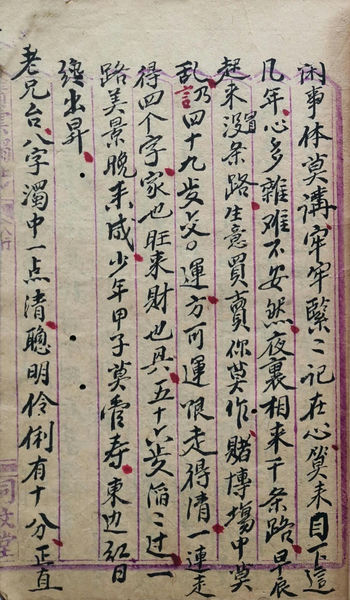 闲事休莫講牢牢緊々記在心算来目下這
几年心多雜难不安然夜裏相来千条路早辰
起来没有条路生意買賣你莫作賭博場中莫
乱言乃四十九岁交運方可運限走得清一連走
得四个字家也旺来財也具五十六岁滔々过一
路美景晚来成少年甲子莫管寿東边红日
總出昇
老兄台八字濁中一点清聰明伶俐有十分正直
同文堂